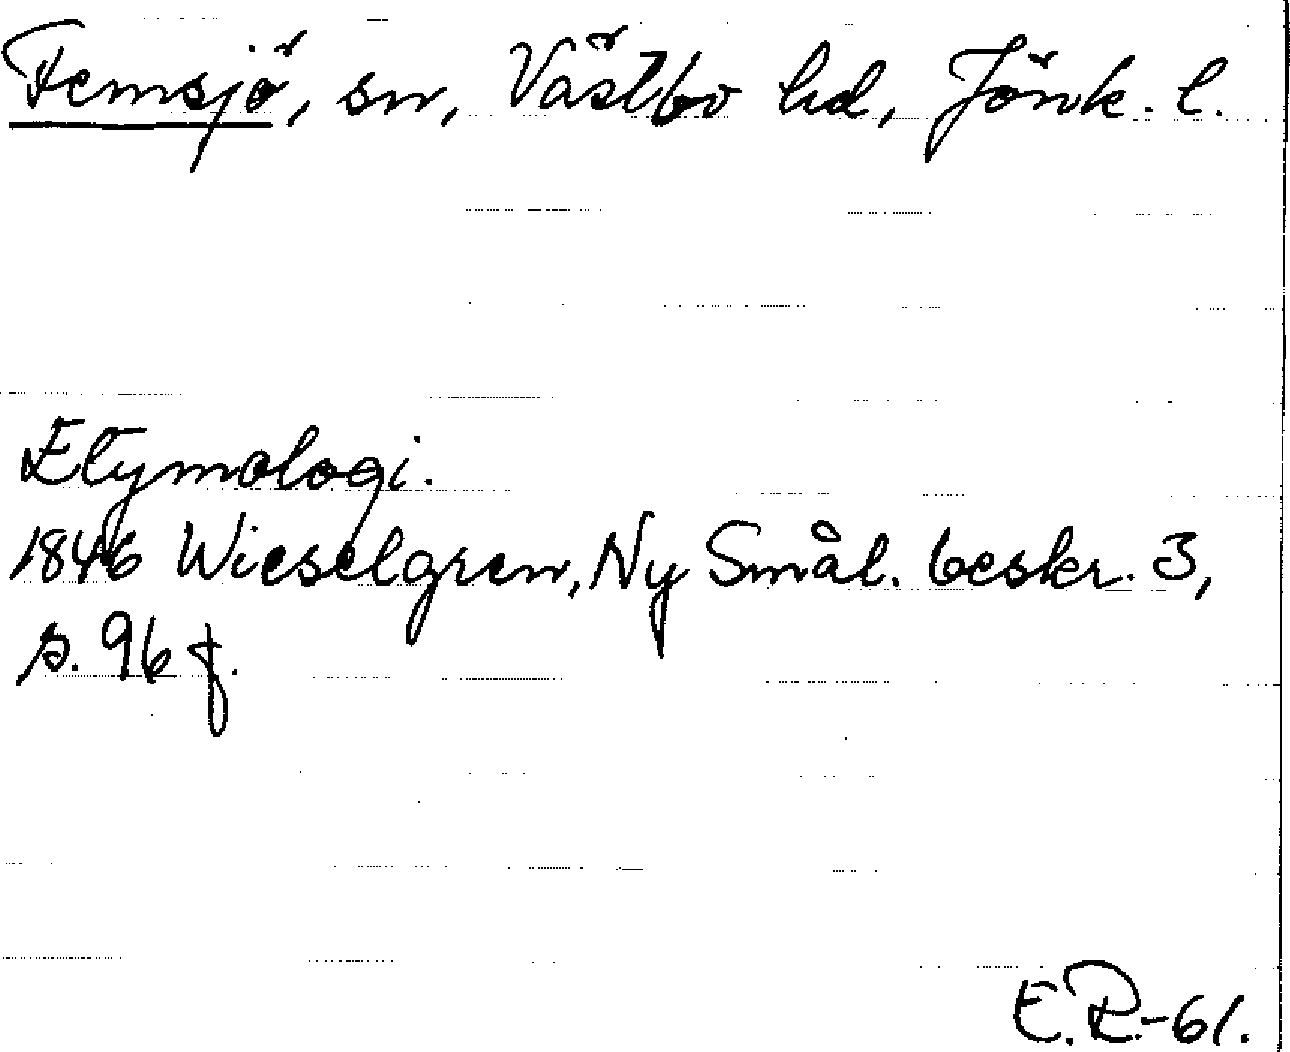 Femsjö, sn, Västbo hd, Jönk. l.
Etymologi.
1846 Wieselgren, Ny Smål. beskr. 3,
s. 96 f.
E.R.-61.